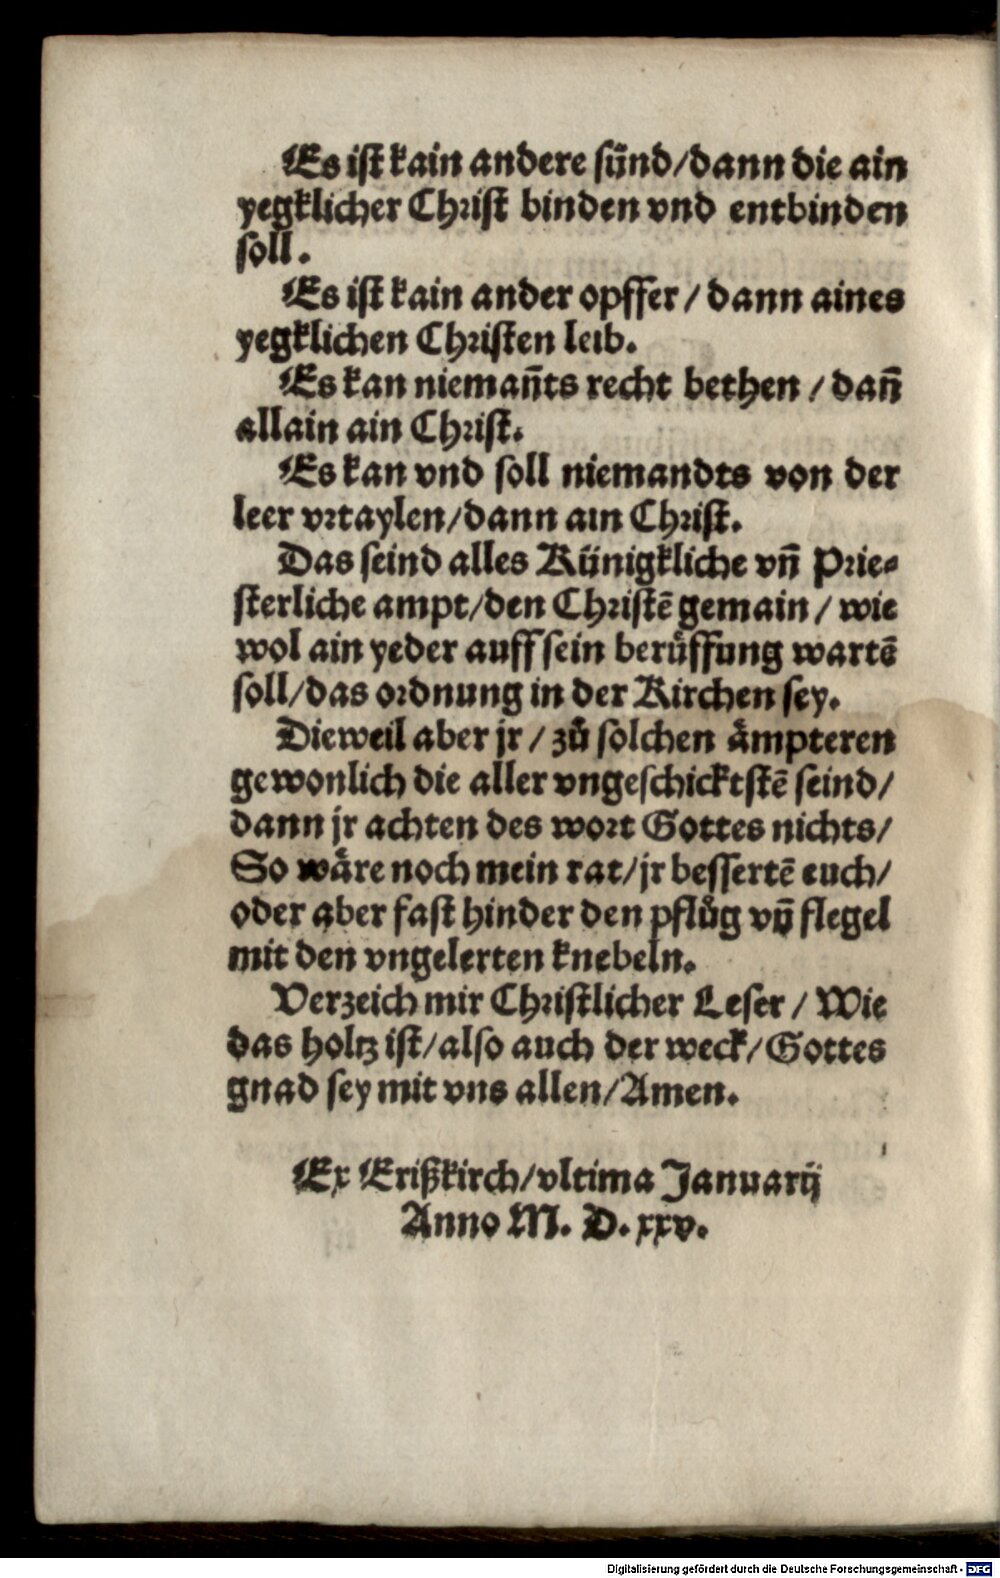 Es ist kain andere sünd/dann die ain
yegklicher Christ binden vnd entbinden
soll.
Es ist kain ander opffer/dann aines
yegklichen Christen leib.
Es kan niemañts recht bethen/dañ
allain ain Christ.
Es kan vnd soll niemandts von der
leer vrtaylen/dann ain Christ.
Das seind alles Künigkliche vñ Prie⸗
sterliche ampt/den Christē gemain/wie
wol ain yeder auff sein berůffung wartē
soll/das ordnung in der Kirchen sey.
Dieweil aber jr/zů solchen aͤmpteren
gewonlich die aller vngeschicktstē seind/
dann jr achten des wort Gottes nichts/
So waͤre noch mein rat/jr bessertē euch/
oder aber fast hinder den pflůg vñ flegel
mit den vngelerten knebeln.
Verzeich mir Christlicher Leser/Wie
das holtz ist/also auch der weck/Gottes
gnad sey mit vns allen/Amen.
Ex Erißkirch/vltima Januarij
Anno M. D. xxv.
Digitalisierung gefördert durch die Deutsche Forschungsgemeinschaft - DFG